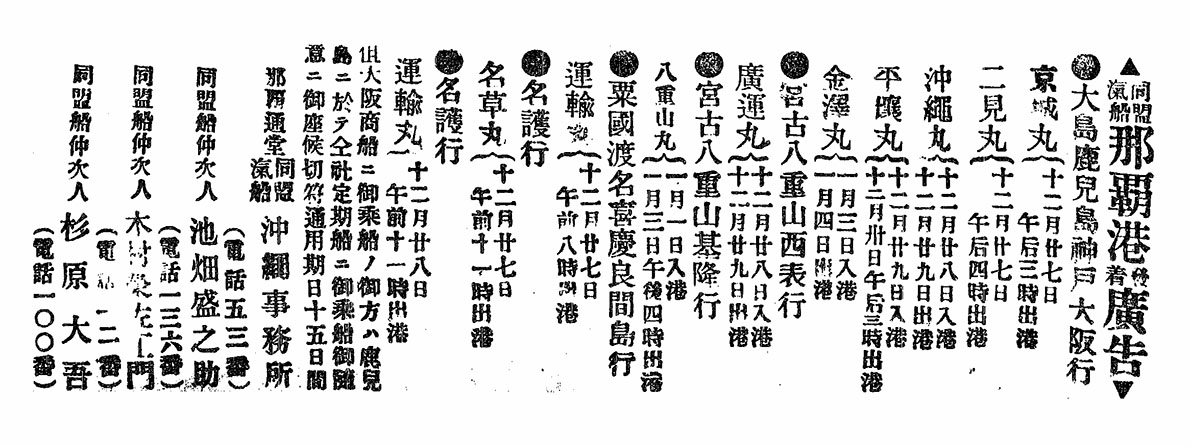 ▲同盟汽船那覇港發着廣告▼
●大島鹿兒島神戸大阪行
京城丸{十二月廿七日午后三時出港
二見丸{十二月廿七日午后四時出港
沖繩丸{十二月廿八日入港十二月廿九日出港
平壤丸{十二月廿九日入港十二月卅日午后三時出港
金澤丸{一月三日入港一月四日出港
●宮古八重山西表行
廣運丸{十二月廿八日入港十二月廿九日出港
●宮古八重山基隆行
八重山丸{一月一日入港一月三日午後四時出港
●粟國渡名喜慶良間島行
運輸丸{十二月廿七日午前八時出港
●名護行
名草丸{十二月廿七日午前十一時出港
●名護行
運輸丸{十二月廿八日午前十一時出港
但大阪商船ニ御乘船ノ御方ハ鹿兒
島ニ於テ仝社定期船ニ御乘船御隨
意ニ御座候切符通用期日十五日間
那覇通堂同盟汽船沖繩事務所
(電話五三番)
同盟船仲次人 池畑盛之助
(電話一三六番)
同盟船仲次人 木村栄左工門
(電 一二番)
同盟船仲次人 杉原大吾
(電話一〇〇番)